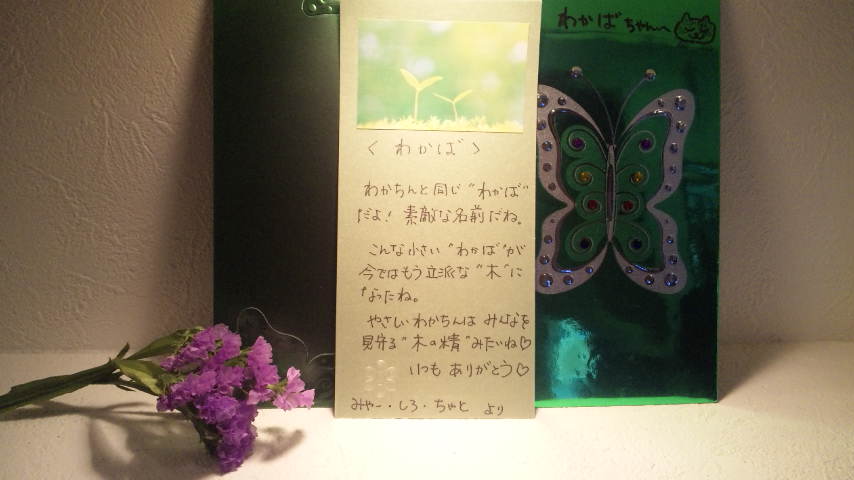 わかばちゃんへ
〈 わかば 〉
わかちんと同じ“わかば”
だよ！ 素敵な名前だね。
こんな小さい“わかば”が
今ではもう立派な“木”に
なったね。
やさしいわかちんは みんなを
見守る“木の精”みたいね♡
いつも ありがとう♡
みやー・しろ・ちゃと より